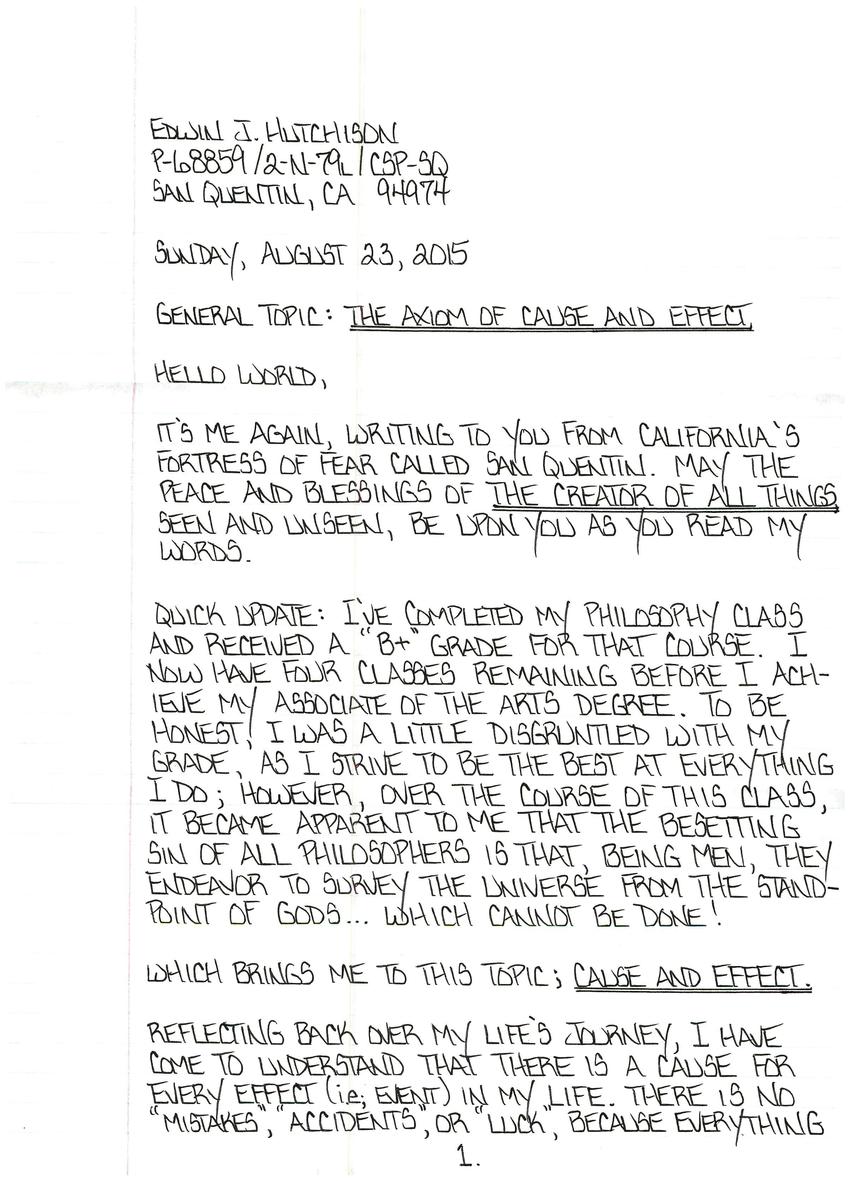 EDWIN J. HUTCHISON
P-68859/2-N-79L/CSP-SQ
SAN QUENTIN, CA 94974
SUNDAY, AUGUST 23, 2015
GENERAL TOPIC: THE AXIOM OF CAUSE AND EFFECT.
HELLO WORLD,
IT'S ME AGAIN, WRITING TO YOU FROM CALIFORNIA'S
FORTRESS OF FEAR CALLED SAN QUENTIN. MAY THE
PEACE AND BLESSINGS OF THE CREATOR OF ALL THINGS
SEEN AND UNSEEN, BE UPON YOU AS YOU READ MY
WORDS.
QUICK UPDATE: I'VE COMPLETED MY PHILOSOPHY CLASS
AND RECEIVED A "B+" GRADE FOR THAT COURSE. I
NOW HAVE FOUR CLASSES REMAINING BEFORE I ACH-
IEVE MY ASSOCIATE OF THE ARTS DEGREE. TO BE
HONEST, I WAS A LITTLE DISGRUNTLED WITH MY
GRADE, AS I STRIVE TO BE THE BEST AT EVERYTHING
I DO; HOWEVER, OVER THE COURSE OF THIS CLASS,
IT BECAME APPARENT TO ME THAT THE BESETTING
SIN OF ALL PHILOSOPHERS IS THAT, BEING MEN, THEY
ENDEAVOR TO SURVEY THE UNIVERSE FROM THE STAND-
POINT OF GODS... WHICH CANNOT BE DONE!
WHICH BRINGS ME TO THIS TOPIC; CAUSE AND EFFECT.
REFLECTING BACK OVER MY LIFE'S JOURNEY, I HAVE
COME TO UNDERSTAND THAT THERE IS A CAUSE FOR
EVERY EFFECT (i.e; EVENT) IN MY LIFE. THERE IS NO
"MISTAKES", "ACCIDENTS", OR "LUCK", BECAUSE EVERYTHING
1.